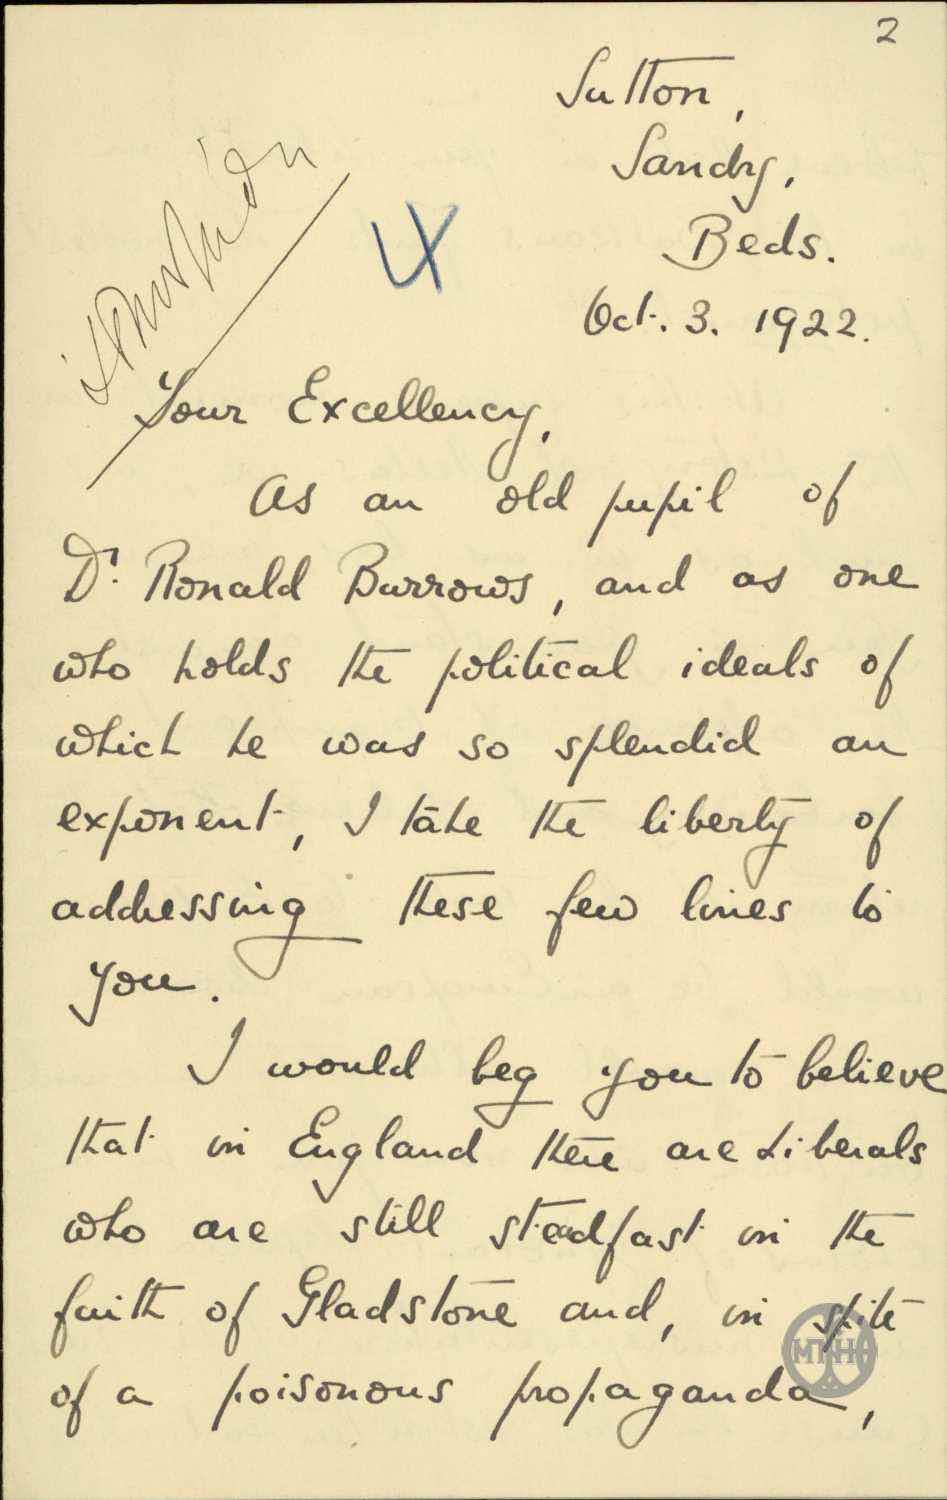 2
Sutton,
Sandy,
Beds.
Oct. 3. 1922.
4
Your Excellency,
As an old pupil of
Dr. Ronald Burrows, and as one
who holds the political ideals of
which he was so splendid an
exponent, I take the liberty of
addressing these few lines to
you.
I would beg you to believe
that in England there are Liberals
who are still steadfast in the
faith of Gladstone and, in spite
of a poisonous propaganda,